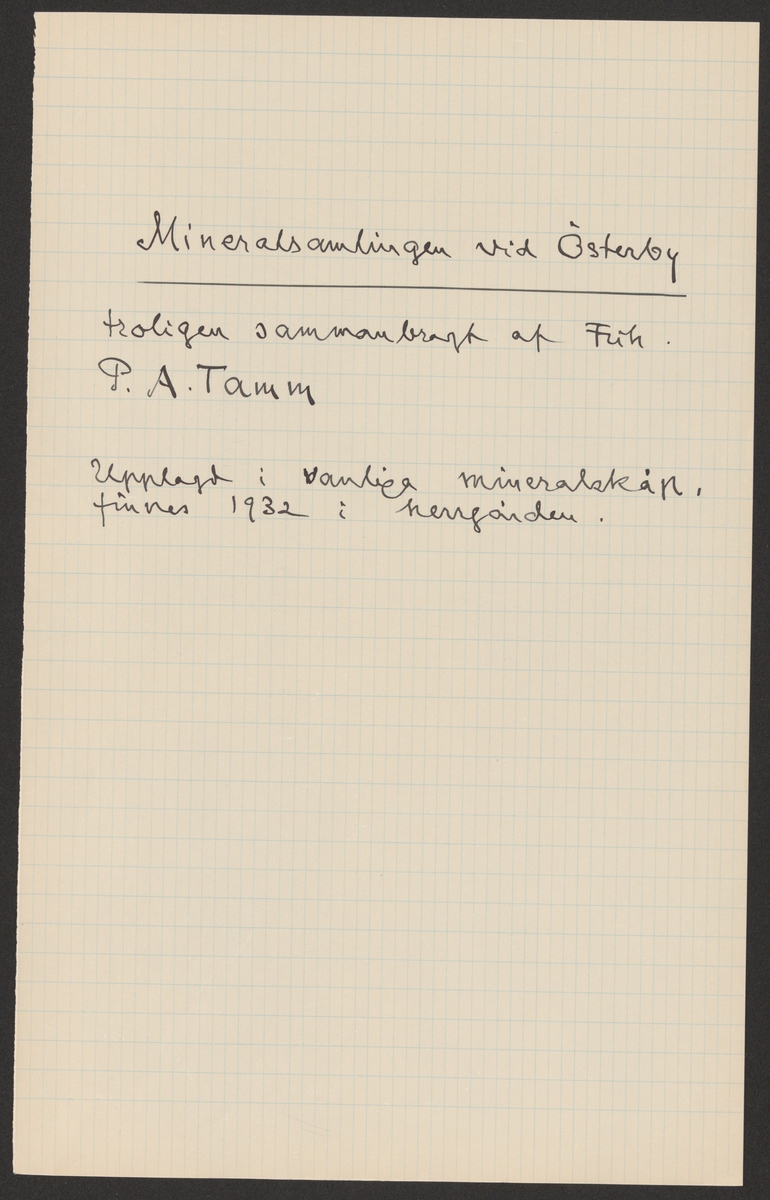 Mineralsamlingen vid Österby
troligen sammanbragt af Frih.
P. A. Tamm
Upplagd i vanliga mineralskåp,
finnes 1932 i herrgården.